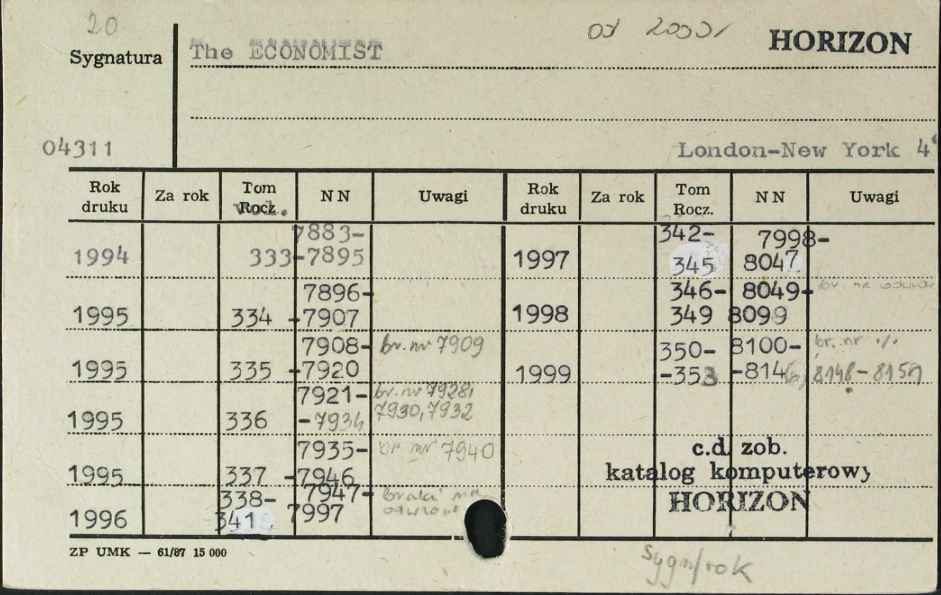 20
Sygnatura The ECONOMIST od HORIZON
04311 London-New York 4°
Rok druku Za rok Tom Rocz. N N Uwagi Rok druku Za rok Tom Rocz. N N Uwagi
vol.
1994 333 7883-
-7895
1995 334 7896-
-7907
1995 335 7908-
-7920 br. nr 7909
1995 336 7921-
-7934 br. nr 7928,
7930, 7932
1995 337 7935-
-7946 br nr 7940
1996 338-
341 7947-
7997 braki na
odwrocie
1997 342-
345 7998-
8047
1998 346-
349 8049-
8099 br. na odwrocie
1999 350-
-353 8100-
-814 br. nr
8148-8151
c.d. zob.
katalog komputerowy
HORIZON
ZP UMK — 61/87 15 000
Sygn/rok